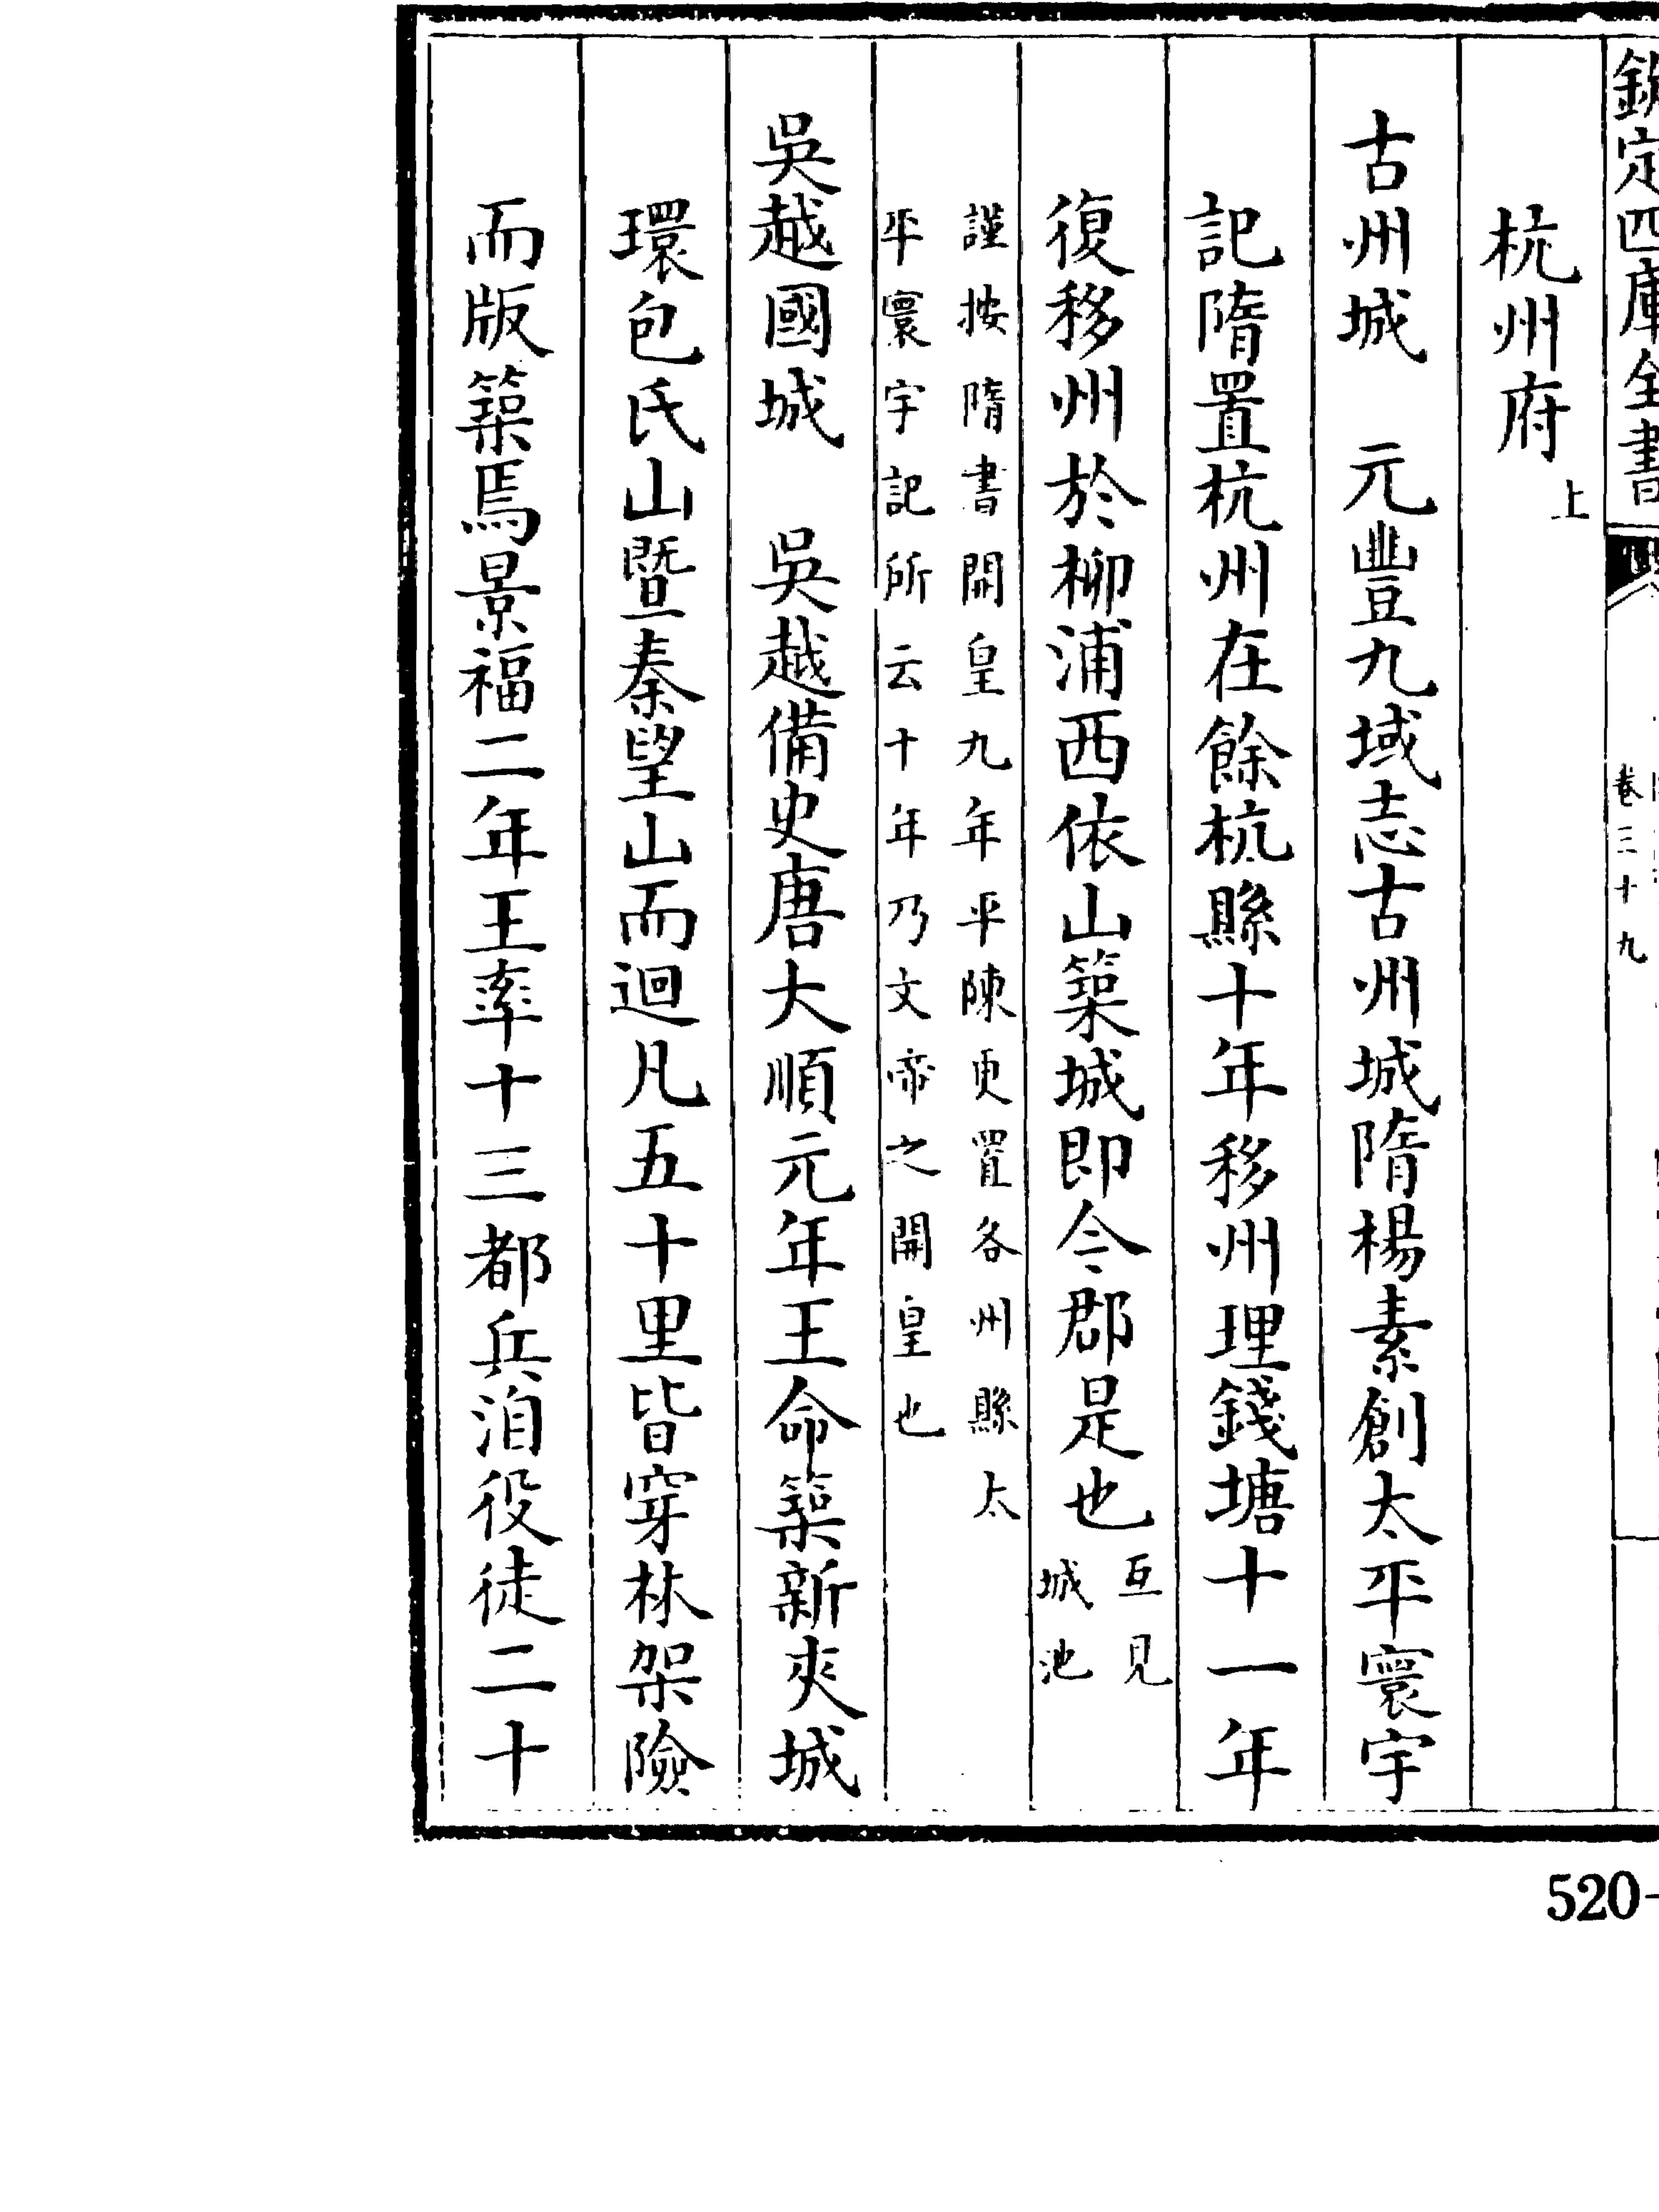 欽定四庫全書
卷三十九
杭州府上
古州城　元豐九域志古州城隋楊素創太平寰宇
記隋置杭州在餘杭縣十年移州理錢塘十一年
復移州於柳浦西依山築城即今郡是也互見城池
謹按隋書開皇九年平陳更置各州縣太
平寰宇記所云十年乃文帝之開皇也
吳越國城　吳越備史唐大順元年王命築新夾城
環包氏山暨秦望山而迴凡五十里皆穿林架險
而版築焉景福二年王率十三都兵洎役徒二十
520-